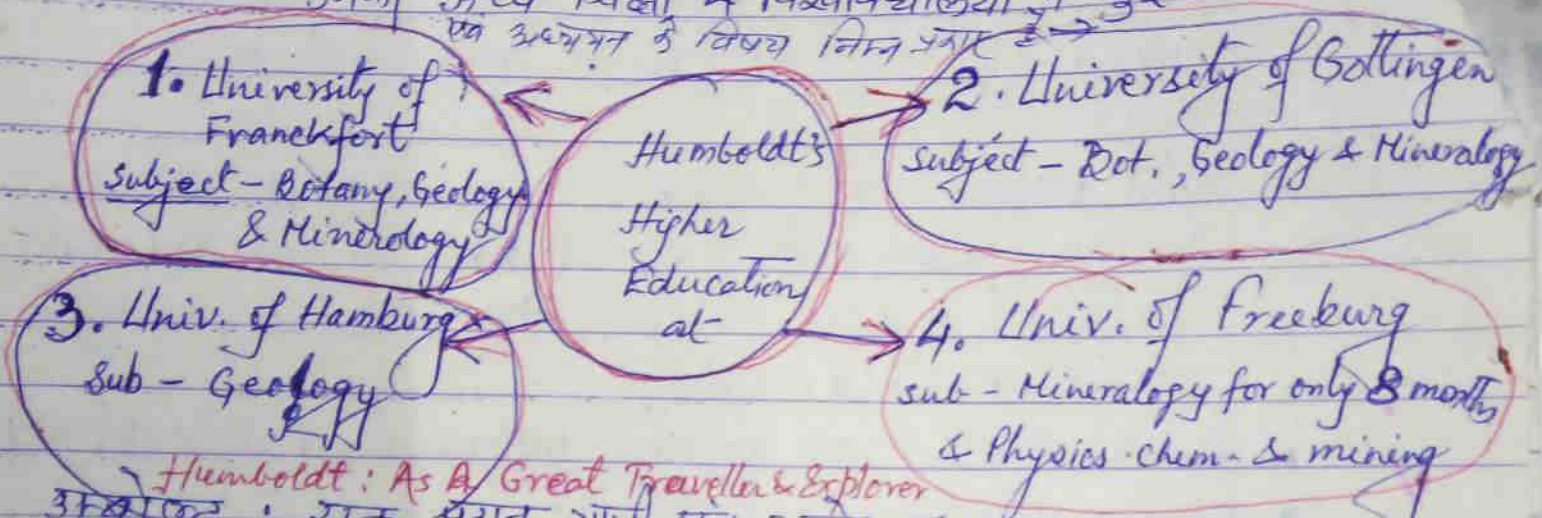 एवं अध्ययन के विषय निम्न प्रकार है →
1. University of
Franckfort
Subject - Botany, Geology
& Minerology
Humboldt's
Higher
Education
at
2. University of Gottingen
Subject - Bot., Geology & Mineralogy
3. Univ. of Hamburg
Sub - Geology
4. Univ. of Freeburg
Sub - Mineralogy for only 8 months
& Physics. Chem. & mining
Humboldt : As A Great Traveller & Explorer